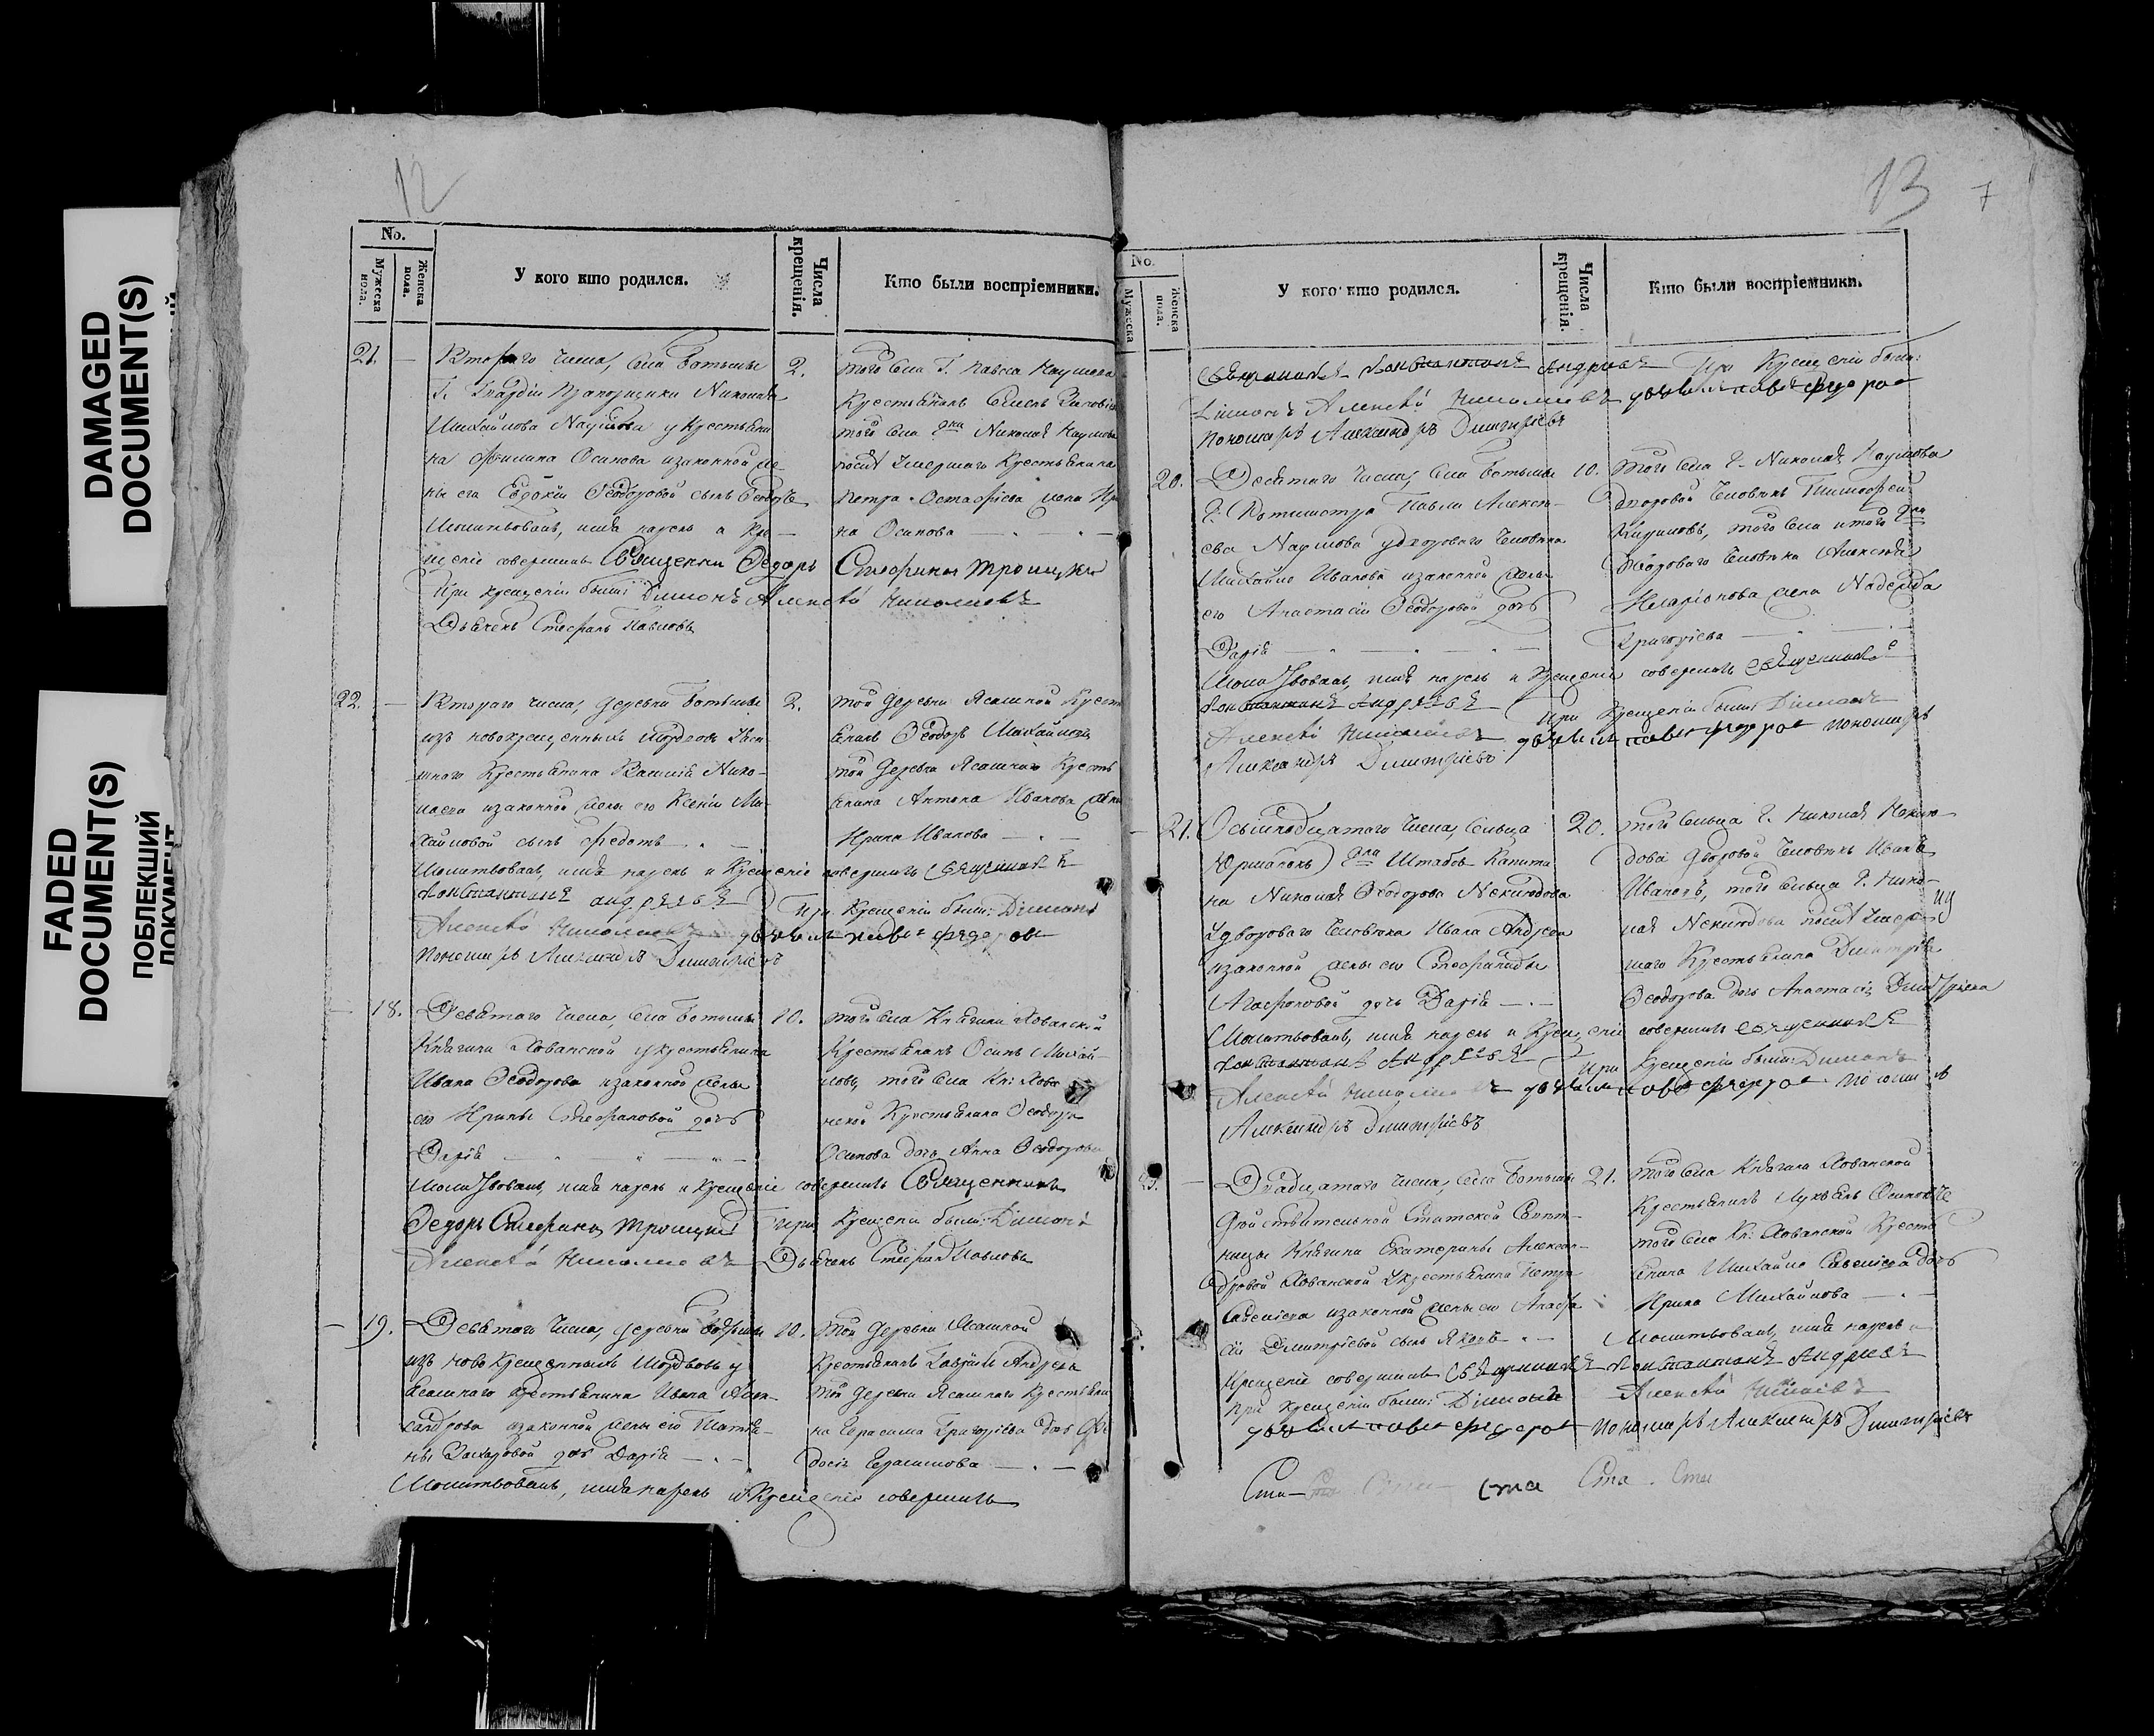 DAMAGED
DOCUMENT(S)
FADED
DOCUMENT(S)
ПОБЛЕКШИЙ
ДОКУМЕНТ
12
No.
Мужеска пола.
Женска пола.
У кого кто родился.
Числа крещенія.
Кто были воспріемники.
21.
Втораго числа, села Ботьмы
Г. Гвардіи Прапорщика Николая
Михайлова Наумова у крестьяни
на Филипа Осипова изаконной же-
ны его Евдокіи Ѳеодоровой сынъ Ѳеодоръ
Молитвовалъ, имя нарекъ и Кре-
щеніе совершилъ Священникъ Ѳедоръ Стефановъ Троицкій
При крещеніи были: Діаконъ Алексѣй Николаевъ
Дьячекъ Стефанъ Павловъ
2.
того села Г. Павла Наумова
Крестьянинъ Семенъ
того села Гна Николая Наумова
послѣ умершаго Крестьянина
Петра Остафіева жена
на Осипова
22.
Втораго числа, деревни Ботьмы
изъ новокрещенныхъ Мордовъ Ясаш-
шнаго Крестьянина Василія Нико-
лаева изаконной жены его Ксеніи Ми-
хайловой сынъ Федотъ
Молитвовалъ, имя нарекъ и Крещеніе совершилъ Священникъ
Константинъ Андреевъ При Крещеніи были: Діаконъ
Алексѣй Николаевъ дьячекъ Павелъ Федоровъ
Пономарь Александръ Димитріевъ
2.
той деревни Ясашной Кресть
янинъ Ѳеодоръ Михайловъ
той деревни Ясашнаго Кресть
янина Антона Иванова жена
Ирина Иванова
18.
Девятаго числа, села Ботьмы
Княгини Хованской укрестьянина
Ивана Ѳеодорова изаконной жены
его Ирины Стефановой дочь
Дарія
Молитвовалъ, имя нарекъ и Крещеніе совершилъ Священникъ
Ѳедоръ Стефановъ Троицкій При Крещеніи были: Діаконъ
Алексѣй Николаевъ Дьячекъ Стефанъ Павловъ
10.
того села Княгини Хованской
Крестьянинъ Осипъ Михай-
ловъ, того села Кн: Хова
нской Крестьянина Ѳеодора
Осипова дочь Анна Ѳеодорова
19.
Девятаго числа, деревни Ботьмы
изъ новокрещенныхъ Мордовъ у
Ясашнаго крестьянина Ивана Алек-
сандрова изаконной жены его Татія-
ны Захаровой дочь Дарія
Молитвовалъ, имя нарекъ и Крещеніе совершилъ
10.
той деревни Ясашной
Крестьянинъ Гаврилъ Андреевъ
той деревни Ясашнаго Крестьяни
на Герасима Григорьева дочь Ѳе
досія Герасимова
13
7
No.
Мужеска
Женска пола.
У кого кто родился.
Числа крещенія.
Кто были воспріемники.
Священникъ Константинъ Андреевъ При Крещеніи были:
Діаконъ Алексѣй Николаевъ дьячекъ Павелъ Федоровъ
Пономарь Александръ Димитріевъ
20.
Десятаго числа, села Ботьмы
Г. Ротмистра Павла Алексѣ-
ева Наумова удвороваго человѣка
Михайло Иванова изаконной жены
его Анастасіи Ѳеодоровой дочь
Дарія
Молитвовалъ, имя нарекъ и Крещеніе совершилъ Священникъ
Константинъ Андреевъ При Крещеніи были: Діаконъ
Алексѣй Николаевъ дьячекъ Павелъ Федоровъ пономарь
Александръ Димитріевъ
10.
того села Г. Николая Наумова
дворовой человѣкъ Тимофей
Кириловъ, того села итого Гна
двороваго человѣка Алексѣя
Иларіонова жена Надежда
Григорьева
21.
Осьмнадцатаго числа, сельца
Гна Штабсъ Капита
на Николая Ѳеодорова Неклюдова
удвороваго человѣка Ивана Андреева
изаконной жены его Стефаниды
Агафоновой дочь Дарія
Молитвовалъ, имя нарекъ и Крещеніе совершилъ Священникъ
Константинъ Андреевъ При Крещеніи были: Діаконъ
Алексѣй Николаевъ дьячекъ Павелъ Федоровъ Пономарь
Александръ Димитріевъ
20.
того сельца Г. Николая Неклю-
дова дворовой человѣкъ Иванъ
Ивановъ, того сельца Г. Нико-
лая Неклюдова послѣ умер
шаго Крестьянина Димитрія
Ѳеодорова дочь Анастасія Димитріева
23.
Двадцатаго числа, села Ботьмы
Дѣйствительной Статской Совѣт-
ницы Княгини Екатерины Алексан-
дровой Хованской укрестьянина Петра
Савельева изаконной жены его Анаста
сіи Димитріевой сынъ Яковъ
Крещеніе совершилъ Священникъ Константинъ Андреевъ
При крещеніи были: Діаконъ Алексѣй Николаевъ
дьячекъ Павелъ Федоровъ Пономарь Александръ Димитріевъ
21.
того села Княгини Хованской
Крестьянинъ Лукьянъ Осиповъ
того села Кн: Хованской Кресть
янина Михайло Савельева дочь
Ирина Михайлова
Молитвовалъ, имя нарекъ и